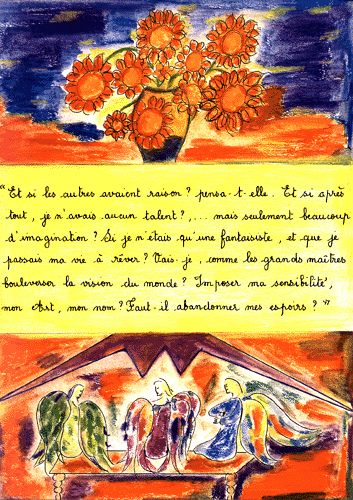 "Et si les autres avaient raison ? pensa-t-elle. Et si après
tout, je n'avais aucun talent ?,... mais seulement beaucoup
d'imagination ? Si je n'étais qu'une fantaisiste, et que je
passais ma vie à rêver ? Vais-je, comme les grands maîtres
bouleverser la vision du monde ? Imposer ma sensibilité,
mon Art, mon nom ? Faut-il abandonner mes espoirs ? "